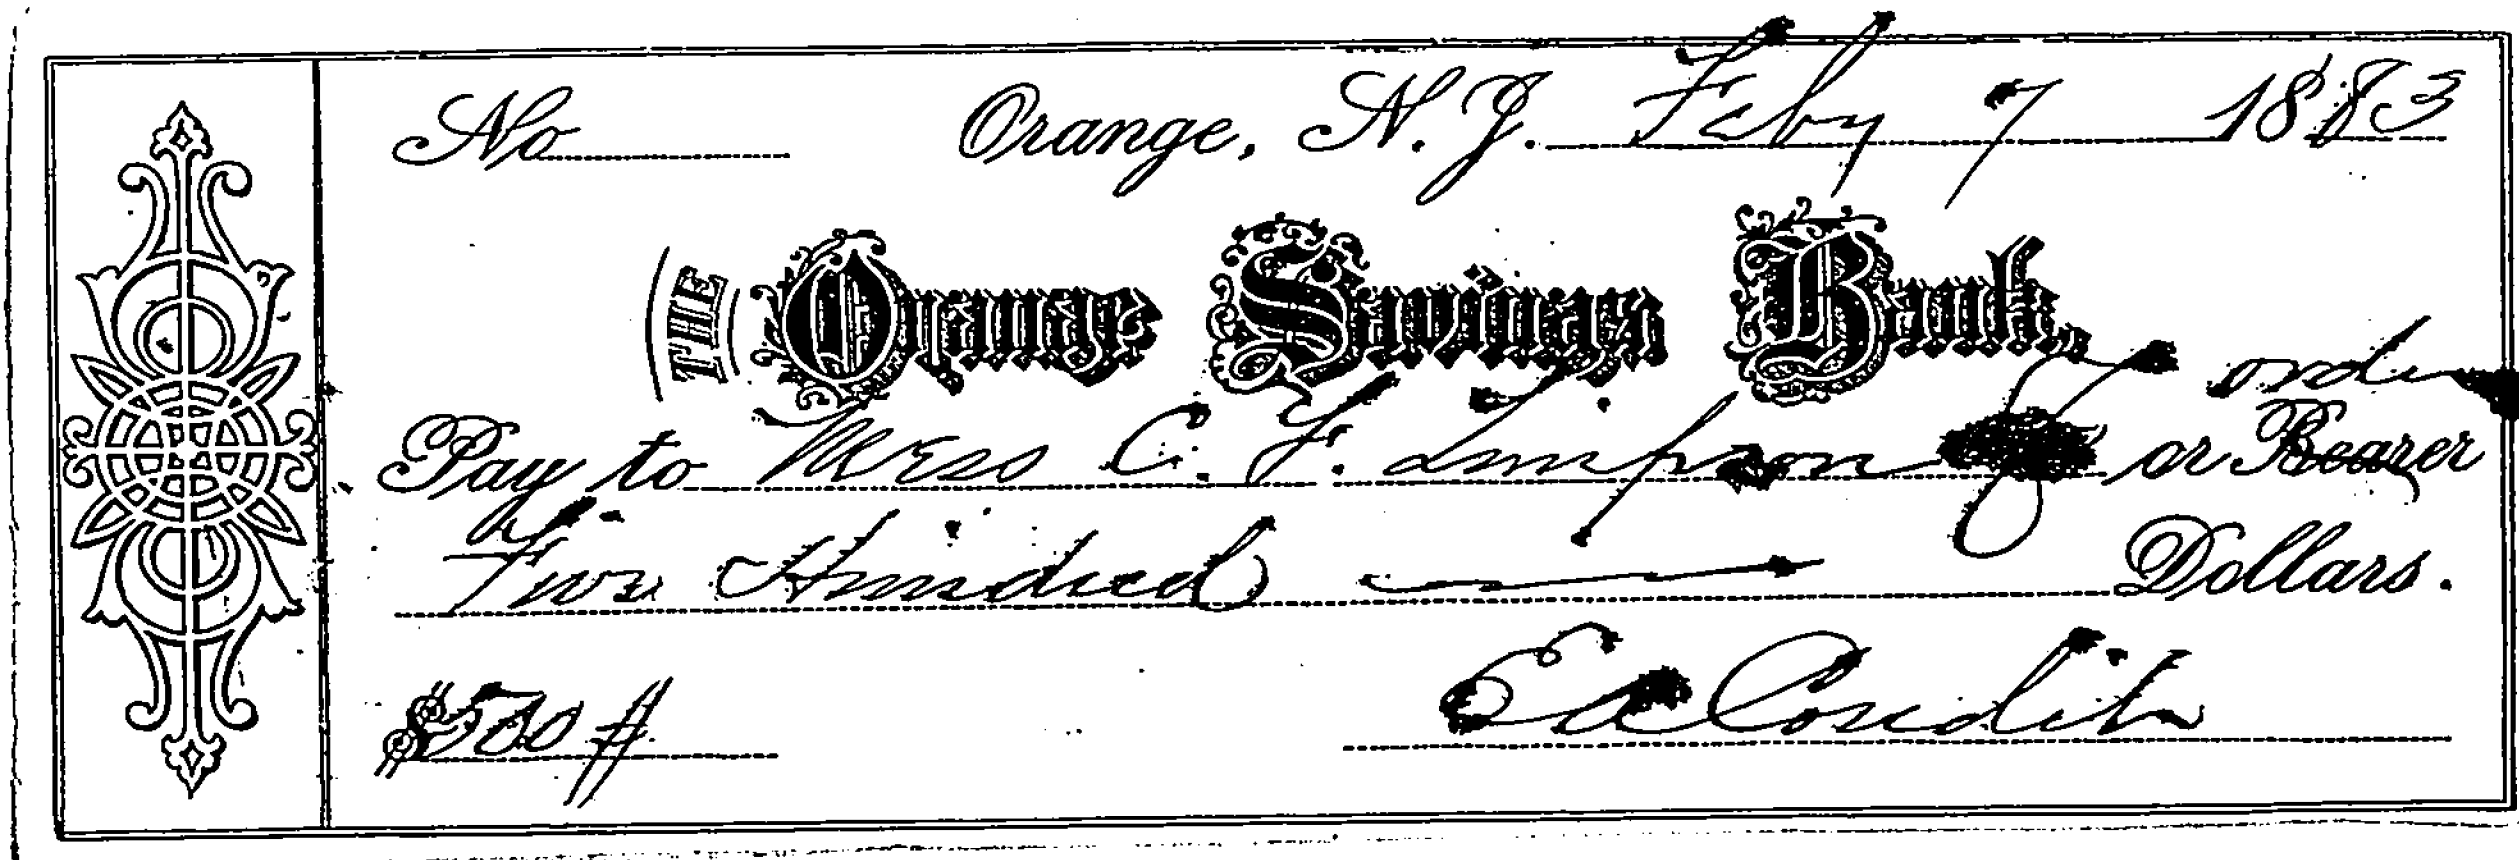 No Orange, N. J. Feby 7 1883
THE Orange Savings Bank,
order
Pay to Mrs C. F. Simpson or Bearer
Five Hundred Dollars.
$500 E A Condit